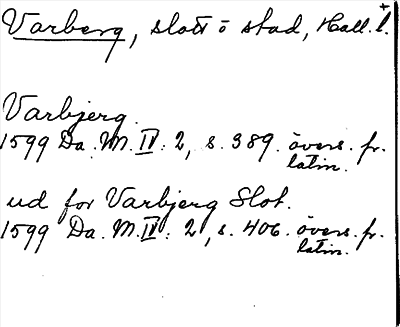 Varberg, slott o stad, Hall. l.
Varbjerg.
1599 Da. M. IV: 2, s. 389. övers. fr.
latin.
ud for Varbjerg Slot.
1599 Da. M. IV: 2, s. 406. övers. fr.
latin.